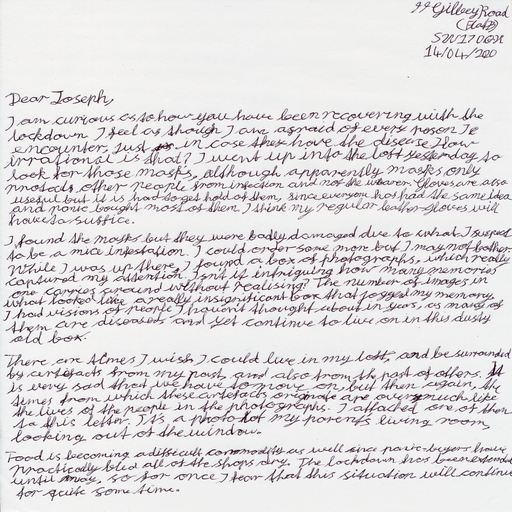 99 Gilbey Road
(Flat B)
SW17 0QH
14/04/200
Dear Joseph,
I am curious as to how you have been recovering with the
lockdown. I feel as though I am afraid of every person I
encounter, just in case they have the disease. How
irrational is that? I went up into the loft yesterday to
look for those masks, although apparently masks only
protects other people from infection and not the wearer. Gloves are also
useful but it is hard to get hold of them, since everyone has had the same idea
and panic bought most of them. I think my regular leather gloves will
have to suffice.
I found the masks but they were badly damaged due to what I suspect
to be a mice infestation. I could order some more but I may not bother.
While I was up there, I found a box of photographs, which really
captured my attention. Isn't it intriguing how many memories
one carries around without realising? The number of images in
what looked like a really insignificant box that jogged my memory.
I had visions of people I haven't thought about in years, as many of
them are diseased and yet continue to live on in this dusty
old box.
There are times I wish I could live in my loft, and be surrounded
by artefacts from my past, and also from the past of others. It
is very sad that we have to move on, but then again, the
times from which these artefacts originate are over much like
the lives of the people in the photographs. I attached one of them
to this letter. It's a photo of my parent's living room,
looking out of the window.
Food is becoming a difficult commodity as well since panic-buyers have
practically bled all of the shops dry. The lockdown has been extended
until May, so for once I fear that this situation will continue
for quite some time.